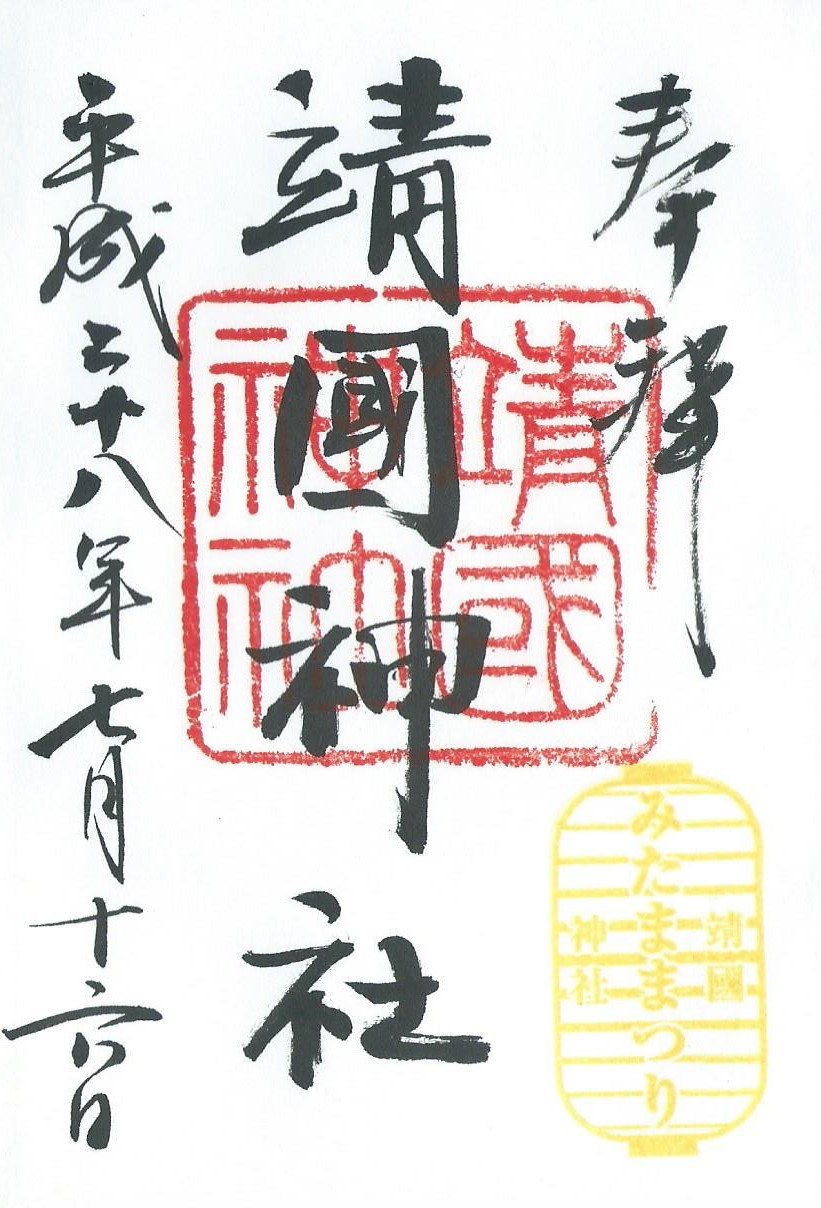 奉拝
靖國神社
平成二十八年七月十六日
靖國
神社
靖國
みたままつり
神社